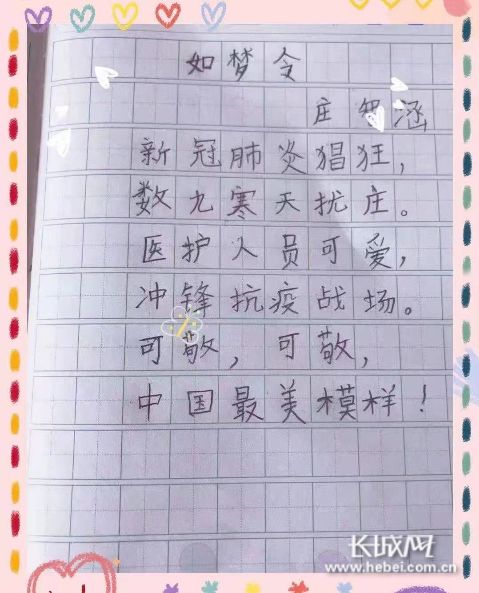 如梦令
庄涵
新冠肺炎猖狂，
数九寒天扰庄。
医护人员可爱，
冲锋抗疫战场。
可敬，可敬，
中国最美模样！
长城网
www.hebei.com.cn